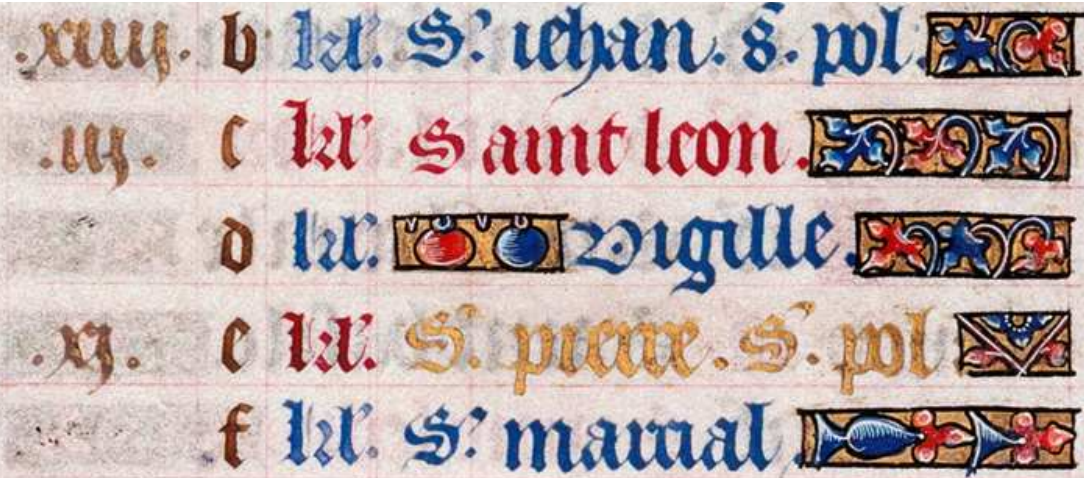 .xiiij. b kl'. S.' iehan. s. pol.
.iij. c kl' Saint leon.
d kl'. vigille.
.xj. e kl'. S.' pierre. S.' pol
f kl'. S.' marcial.